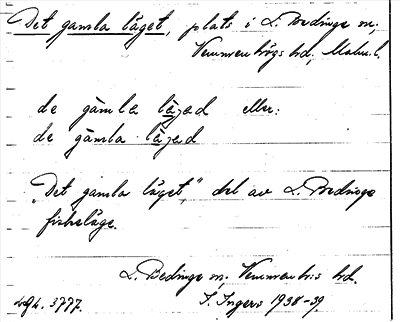 Det gamla läget, plats i L. Bedinge sn,
Vemmenhögs hd, Malm. l.
de gamla lägad eller:
de gamla lägad
"Det gamla läget," del av L. Bedinge
fiskeläge.
L. Bedinge sn, Vemmenhös hd.
I. Ingers 1938-39.
acc. 3777.